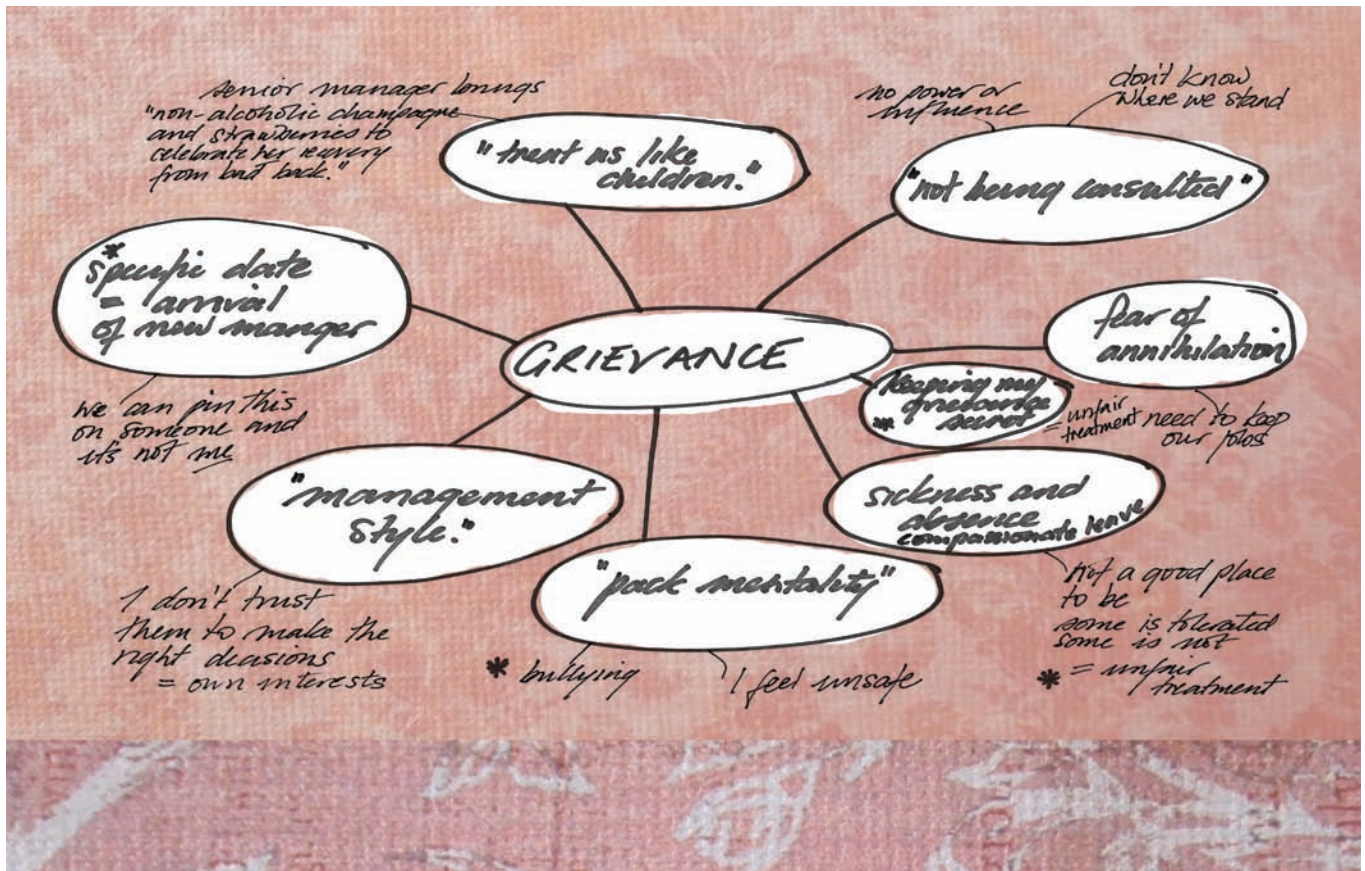 senior manager brings
"non-alcoholic champagne
and strawberries to
celebrate her recovery
from bad back."
"treat us like
children."
no power or
influence
don't know
where we stand
"not being consulted"
* specific date
= arrival
of new manger
we can pin this
on someone and
it's not me
GRIEVANCE
fear of
annihilation
need to keep
our jobs
keeping my
grievance
* secret
= unfair
treatment
"management
style."
I don't trust
them to make the
right decisions
= own interests
"pack mentality"
* bullying
I feel unsafe
sickness and
absence
compassionate leave
Not a good place
to be
some is tolerated
some is not
* = unfair
treatment